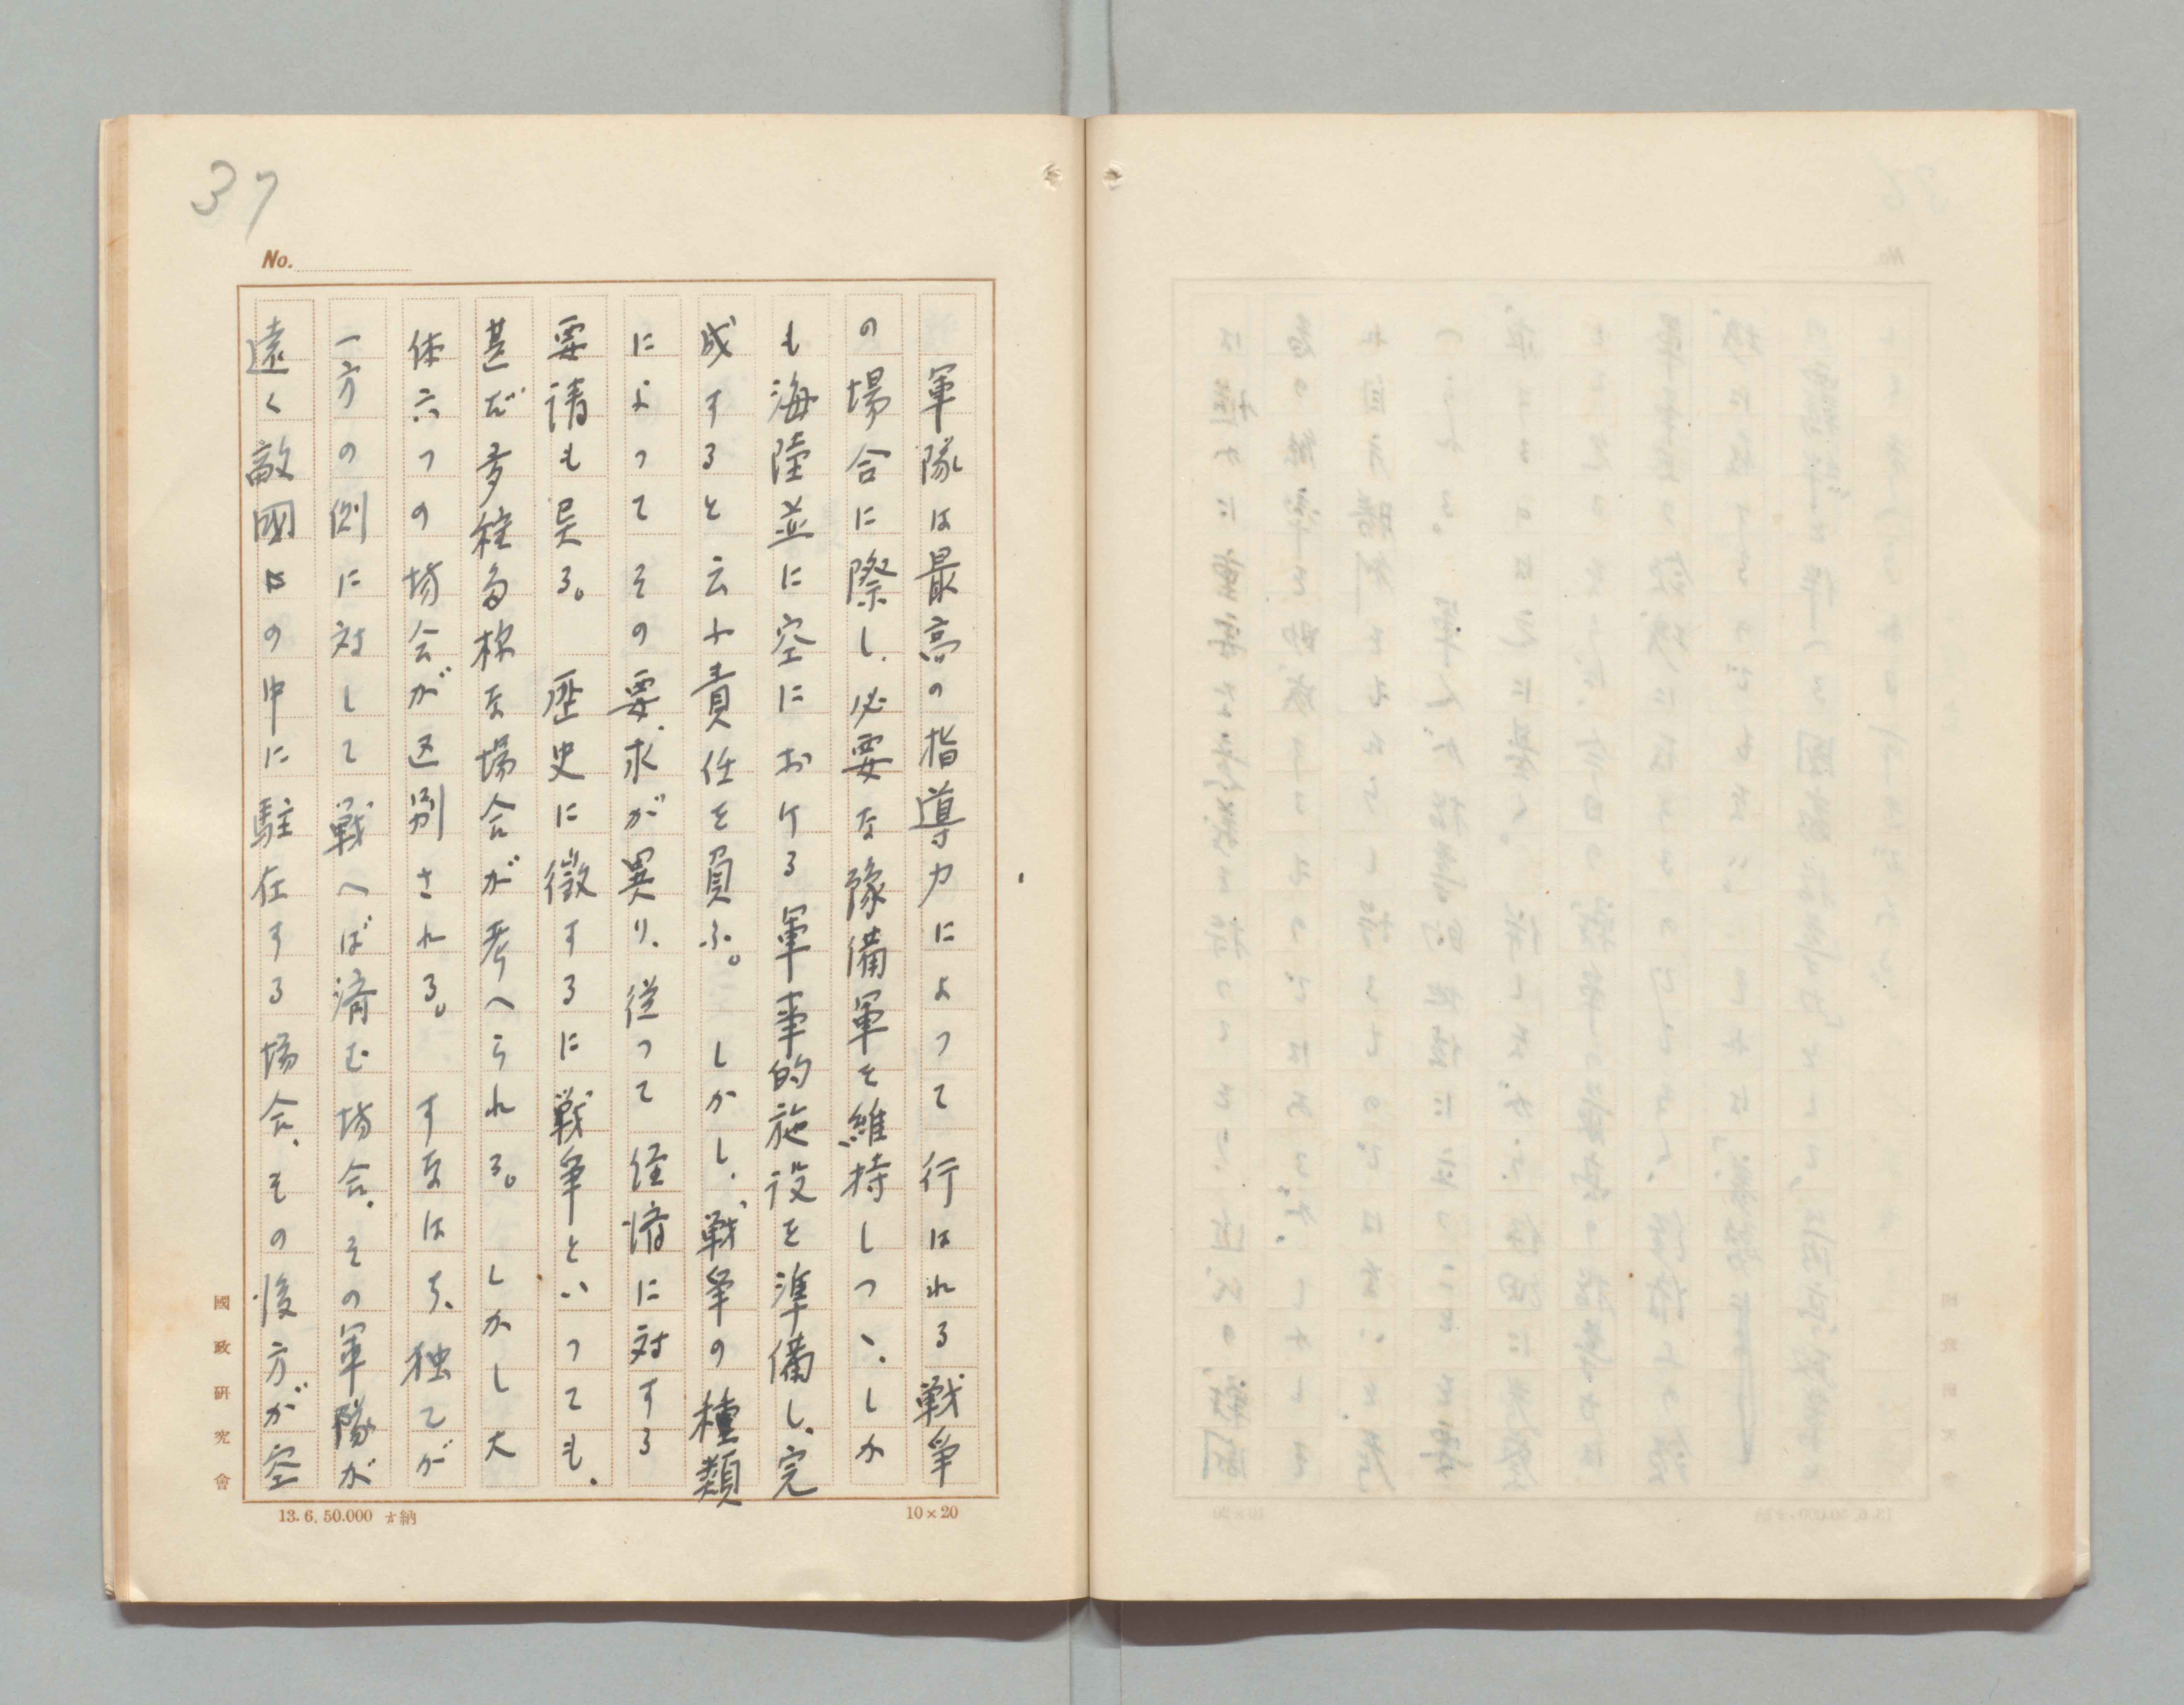 37
No.
軍隊は最高の指導力によって行はれる戦争
の場合に際し、必要な豫備軍を維持しつヽ、しか
も海陸並に空におケる軍事的施設を準備し、完
成すると云ふ責任を負ふ。しかし、戦争の種類
によってその要求が異り、従って経済に対する
要請も異る。歴史に徴するに戦争といっても、
甚だ多種多様な場合が考へられる。しかし大
体六つの場合が区別される。すなはち、独てが
一方の側に対して戦へば済む場合、その軍隊が
遠く敵國の中に駐在する場合、その後方が空
國政研究會
13.6.50.000 納
10×20